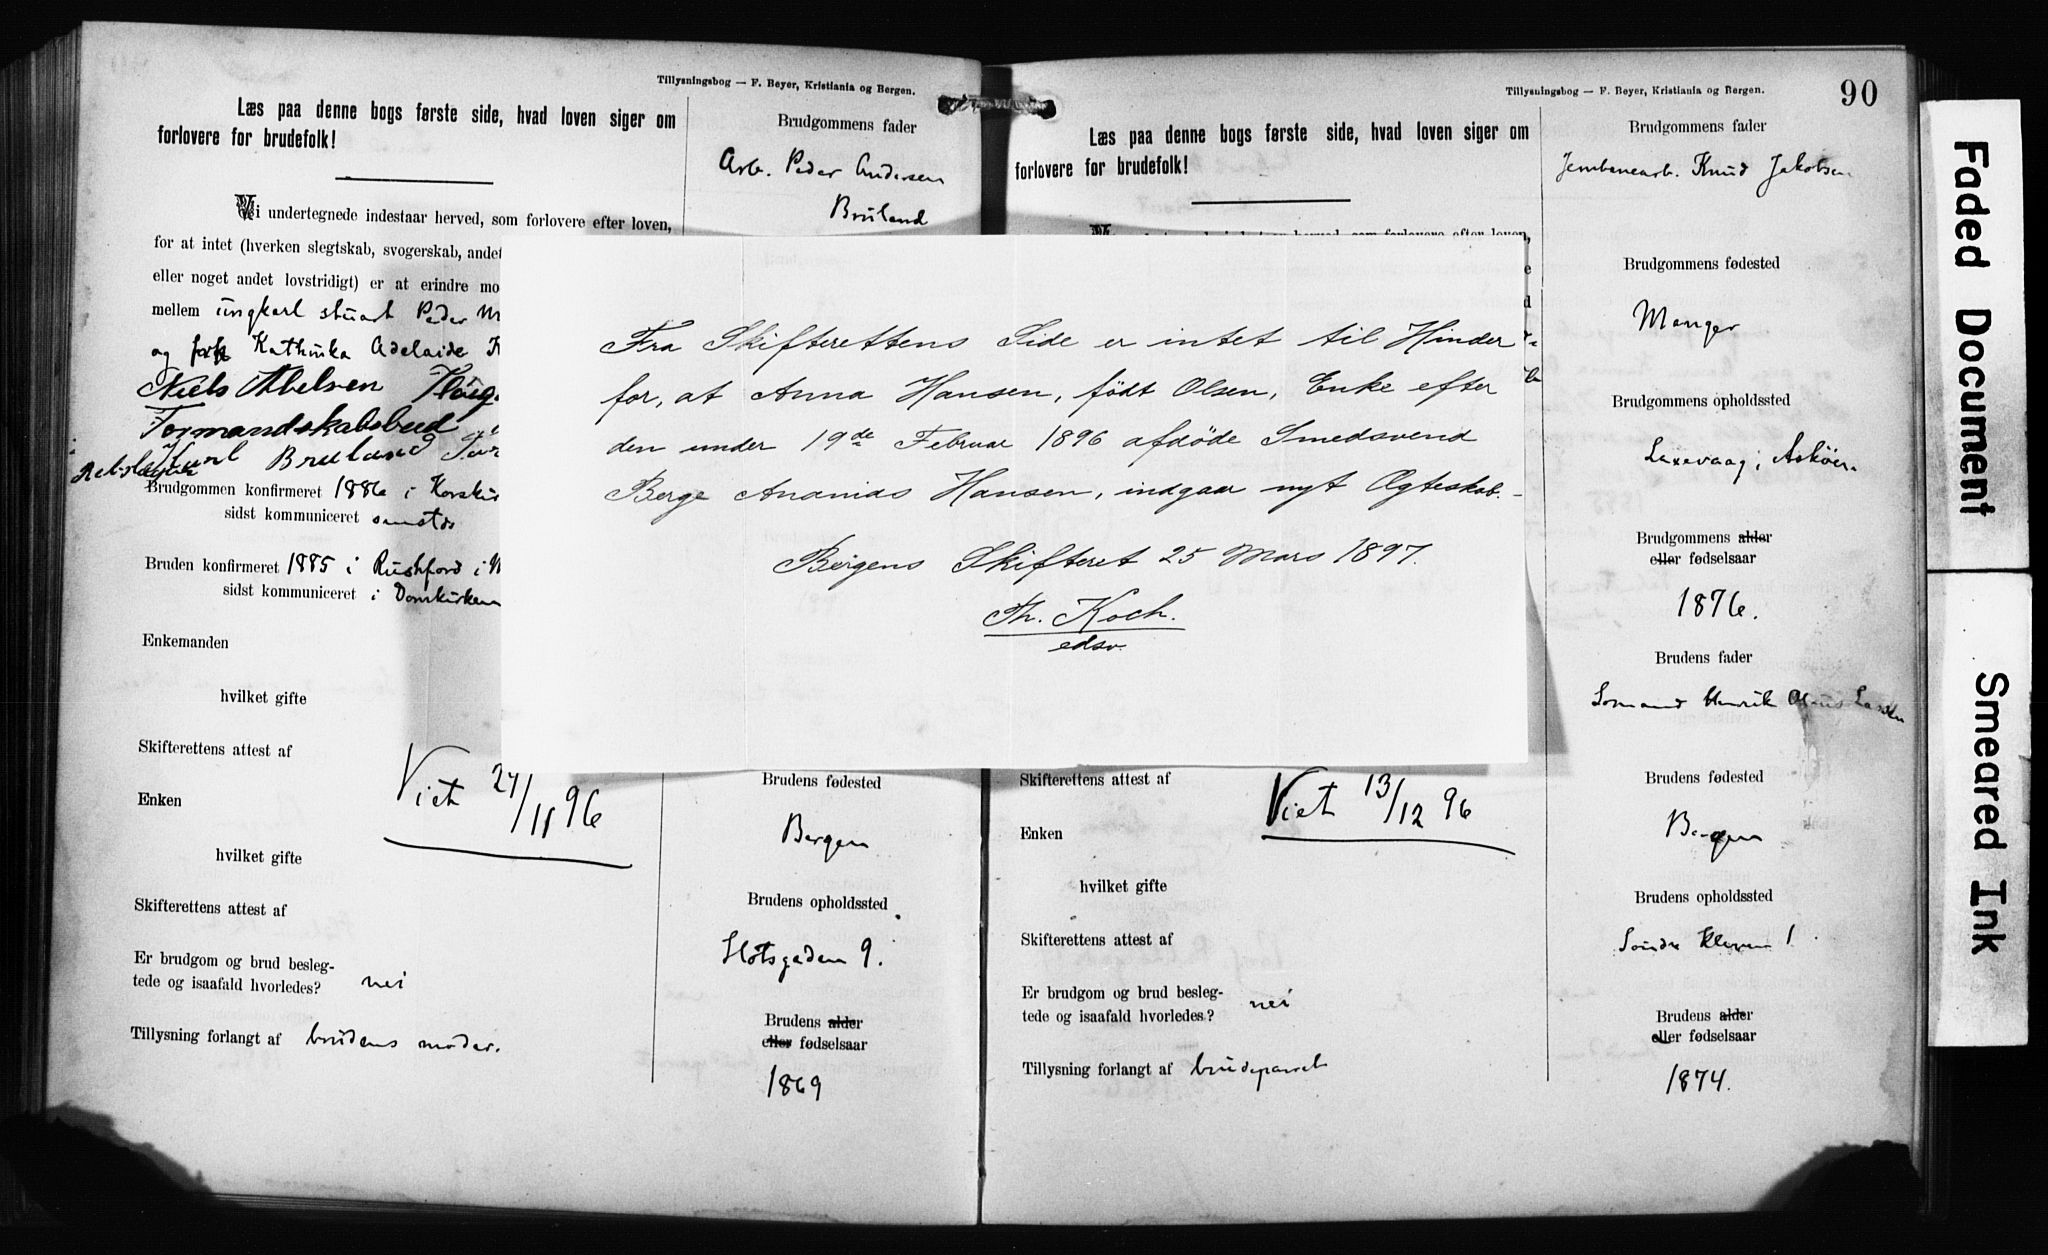 Tillysningsbog — F. Beyer, Kristiania og Bergen.
Læs paa denne bogs første side, hvad loven siger om
forlovere for brudefolk!
Vi undertegnede indestaar herved, som forlovere efter loven,
for at intet (hverken slegtskab, svogerskab, andet
eller noget andet lovstridigt) er at erindre mo
mellem ungkarl stuart Peder M
og frk Kathinka Adelaide K
Niels Abelsen Haug
Formandskabsbud
Bruland
Brudgommen konfirmeret 1886 i Korskir
sidst kommuniceret
Bruden konfirmeret 1885 i Rushford i
sidst kommuniceret i Domkirken
Enkemanden
hvilket gifte
Skifterettens attest af
Viet 24/11 96
Enken
hvilket gifte
Skifterettens attest af
Er brudgom og brud besleg-
tede og isaafald hvorledes? nei
Tillysning forlangt af brudens moder.
Brudgommens fader
Arb. Peder Andersen
Bruland
Brudens fødested
Bergen
Brudens opholdssted
Slotsgaden 9.
Brudens alder
eller fødselsaar
1869
Fra Skifterettens Side er intet til Hinder
for, at Anna Hansen, født Olsen, Enke efter
den under 19de Februar 1896 afdøde Smedsvend
Berge Ananias Hansen, indgaar nyt Ægteskab. -
Bergens Skifteret 25 Mars 1897.
Th. Koch.
edsv.
Tillysningsbog — F. Beyer, Kristiania og Bergen.
90
Læs paa denne bogs første side, hvad loven siger om
forlovere for brudefolk!
Skifterettens attest af
Viet 13/12 96
Enken
hvilket gifte
Skifterettens attest af
Er brudgom og brud besleg-
tede og isaafald hvorledes? nei
Tillysning forlangt af brudeparret
Brudgommens fader
Jernbanearb. Knud Jakobsen
Brudgommens fødested
Manger
Brudgommens opholdssted
Laxevaag i Askøen
Brudgommens alder
eller fødselsaar
1876.
Brudens fader
Sømand Henrik Larsen
Brudens fødested
Bergen
Brudens opholdssted
Søndre Kleven 1
Brudens alder
eller fødselsaar
1874.
Faded Document
Smeared Ink